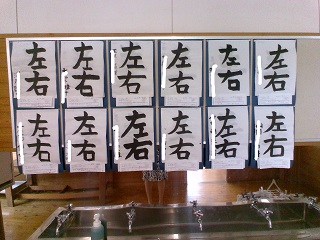 左右
左右
左右
左右
左右
左右
左右
左右
左右
左右
左右
左右